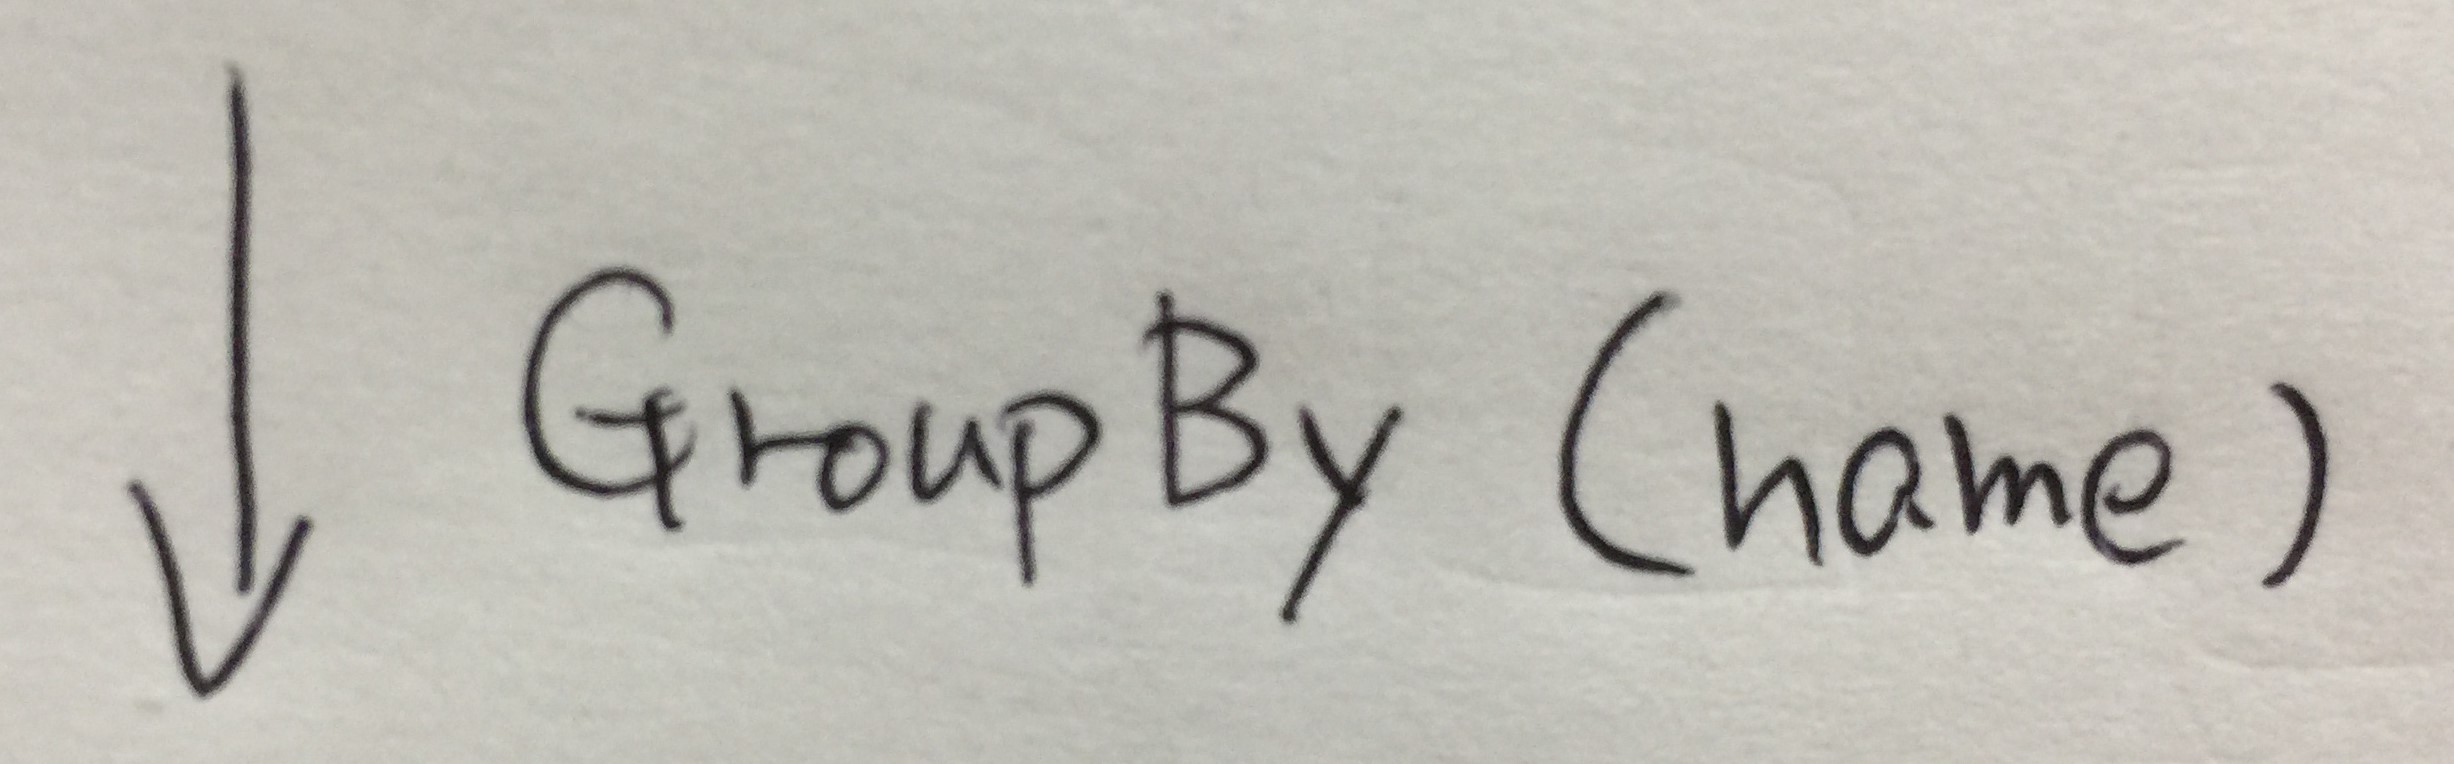 GroupBy (name)